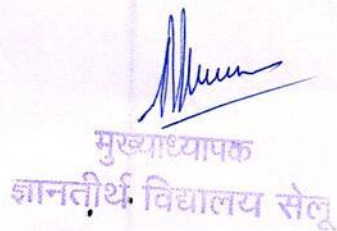 मुख्याध्यापक
ज्ञानतीर्थ विद्यालय सेलू